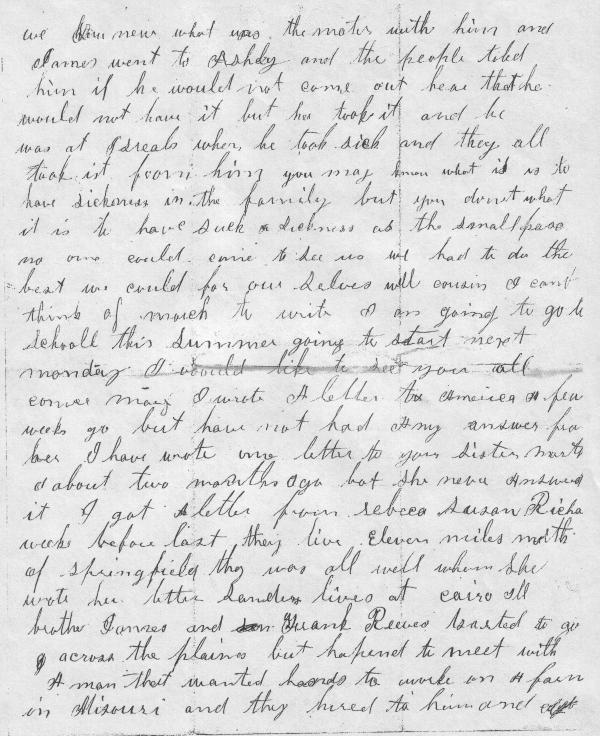 we knew what was the mater with him and
James went to Ashley and the people told
him if he would not come out hear that he
would not have it but he took it and he
was at Isreals when he took sick and they all
took it from him you may know what it is to
have sickness in the family but you donnt what
it is to have such a sickness as the smallpase
no one could come to see us we had to do the
best we could for our selves well cousin I cant
think of march to write I am going to go to
schooll this summer going to start next
monday I would like to see you all
I wrote A letter to America A few
weeks go but have not had Any answer
I have wrote one letter to your sister
about two months ago but she never Answerd
it I got A letter from rebeca Susan Richa
weeks before last they live Eleven miles north
of Springfield they was all well when she
wrote her letter Sanders lives at cairo Ill
brothe James and Frank Reeves started to go
across the plains but hapend to meet with
A man that wanted hands to work on A farm
in Misouri and they hired to him and